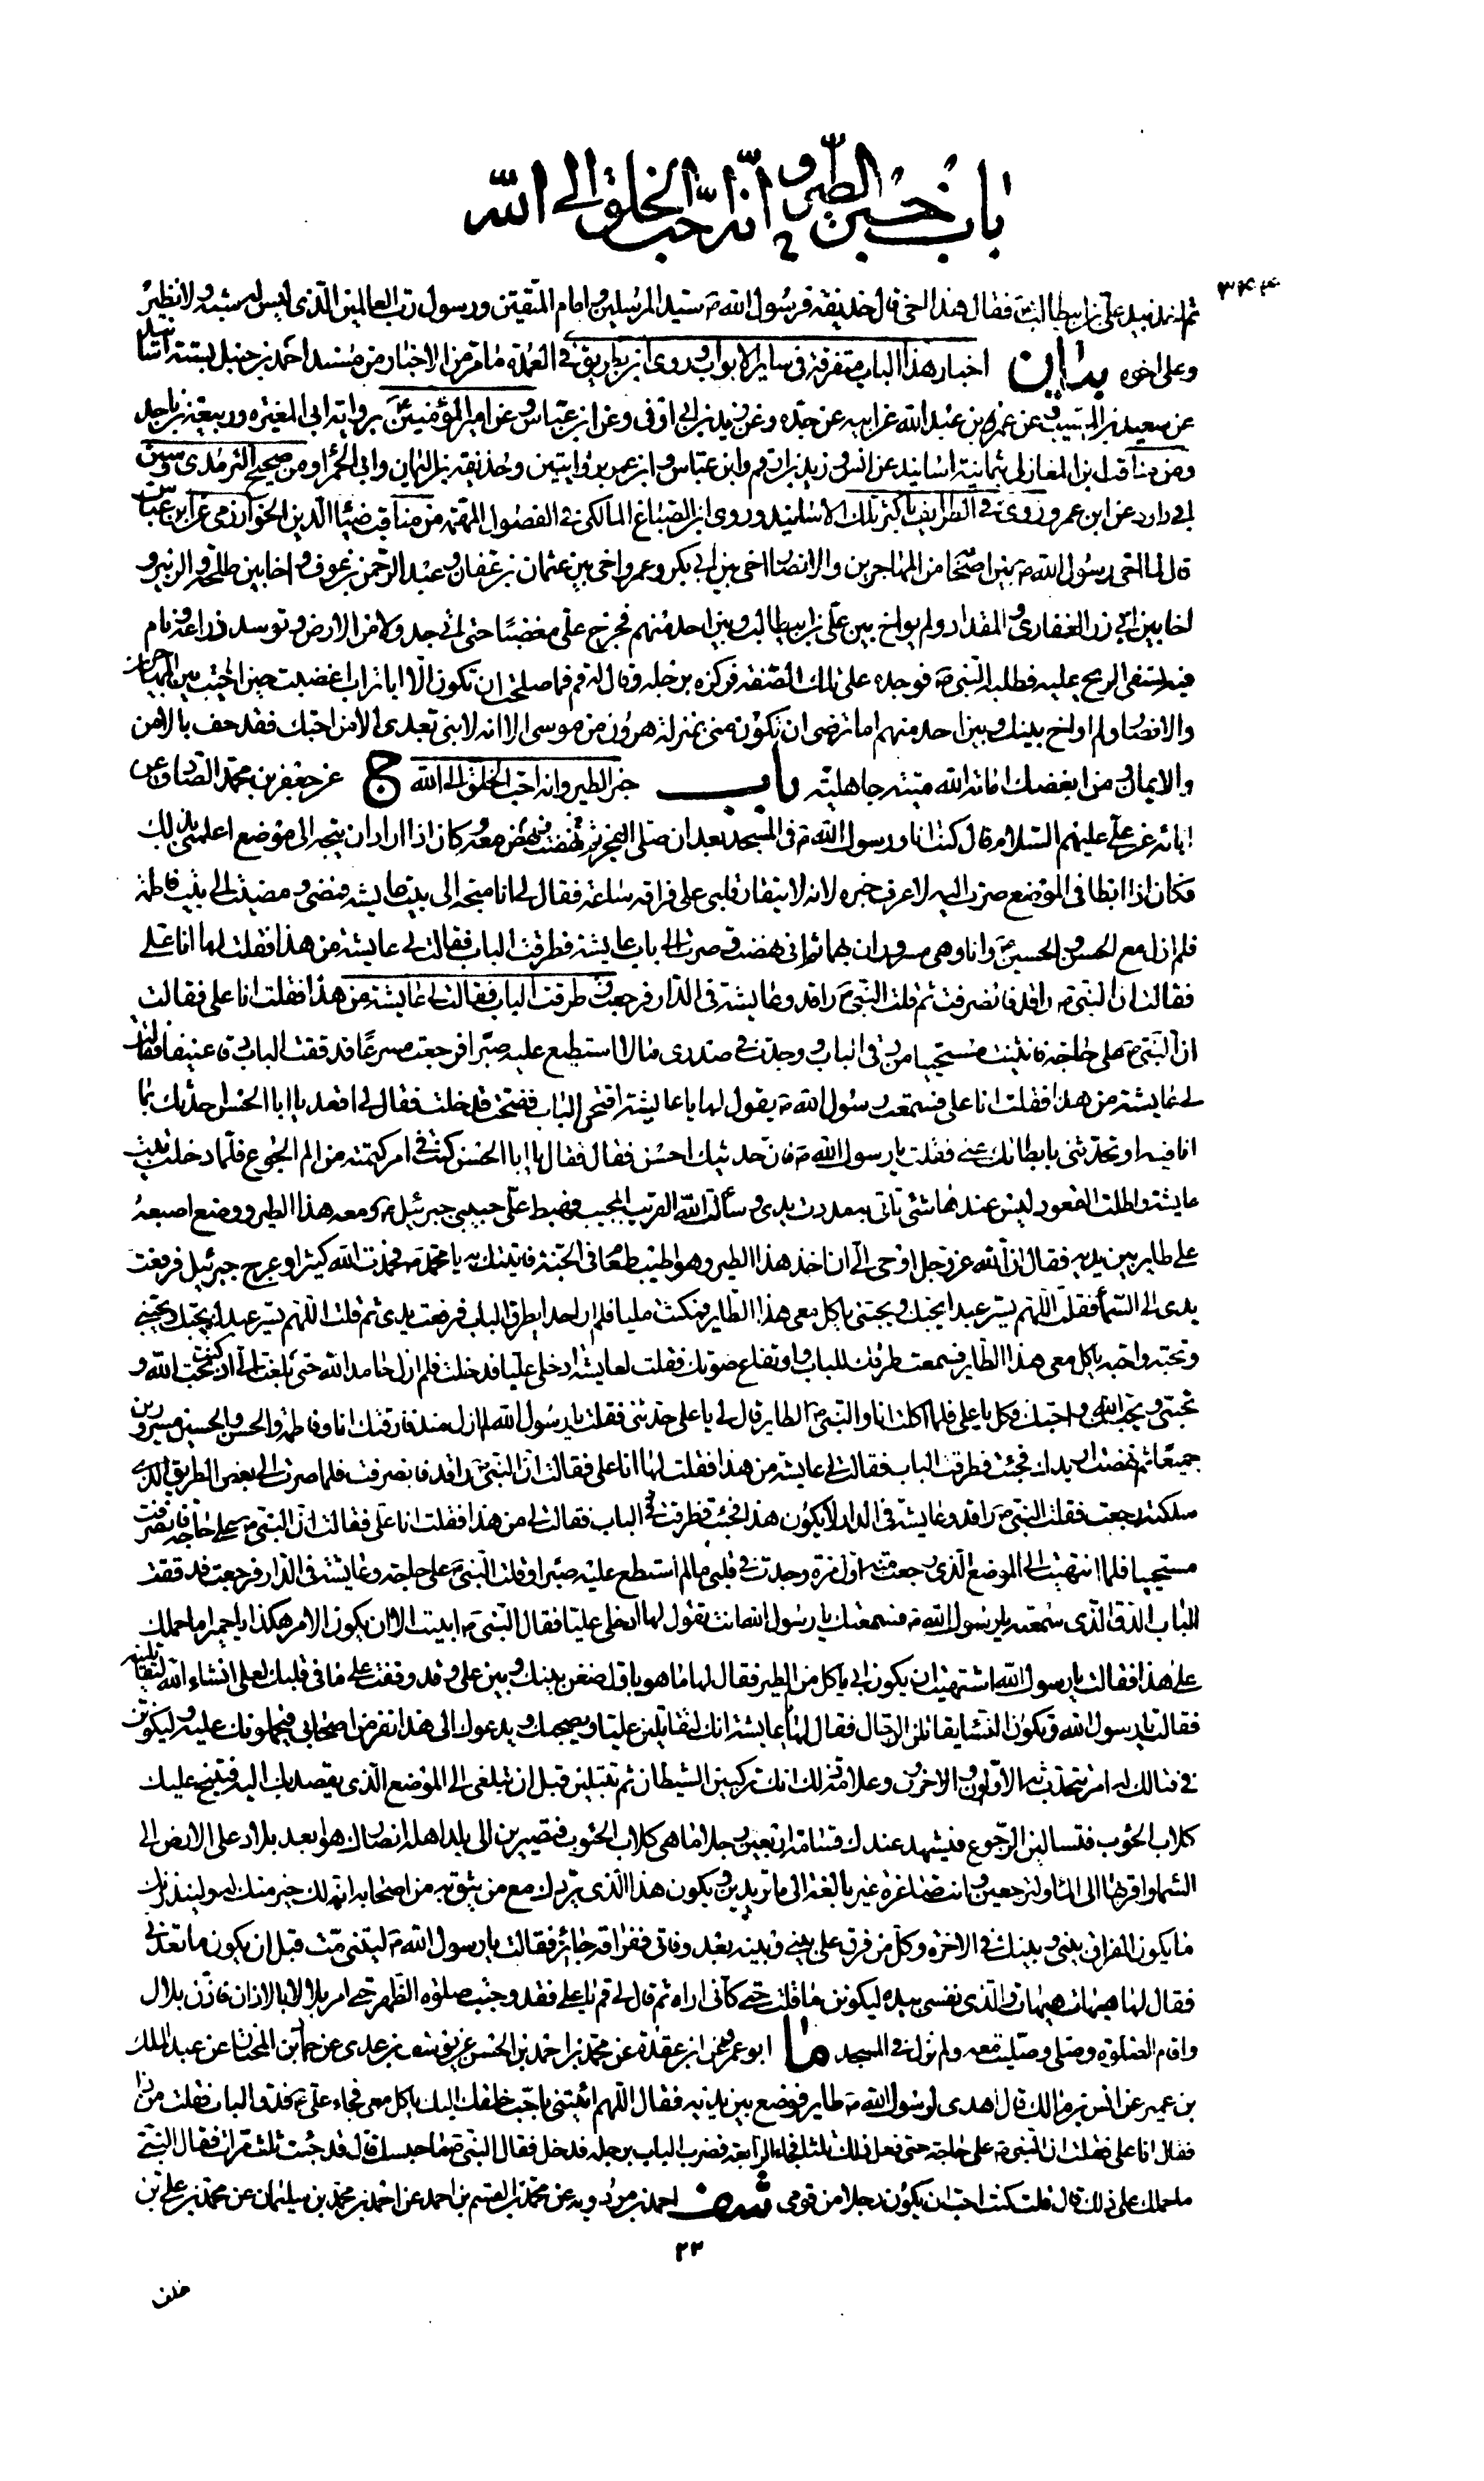 باب خبر الطير و انه احب الخلق الى الله
ثم اخذ بيد علي بن ابيطالب فقال هذا اخي قال حذيفة فرسول الله ص سيد المرسلين و امام المتقين ورسول رب العالمين الذي ليس له شبه ولا نظير
وعلى اخوه بيان اخبار هذا الباب متفرقة في ساير الابواب و روى ابن بطريق في العمدة ما مر من الاخبار من مسند احمد بن حنبل بستة اسانيد
عن سعيد بن المسيب و عن عمر بن عبد الله عن ابيه عن جده وعن زيد بن ابي اوفى وعن ابن عباس وعن امير المؤمنين ع برواية ابي المغيرة وربيعة بن ناجد
ومن مناقب ابن المغازلي بثمانية اسانيد عن انس و زيد بن ارقم وابن عباس و ابن عمر بروايتين وحذيفة بن اليمان وابي الحمرا ومن صحيح الترمذي وسنن
ابي داود عن ابن عمر و روى في الطرايف باكثر تلك الاسانيد وروى ابن الصباغ المالكي في الفصول المهمة من مناقب ضياء الدين الخوارزمي عن ابن عباس
قال لما اخى رسول الله ص بين اصحابه من المهاجرين والانصار اخى بين ابي بكر وعمر واخى بين عثمان بن عفان وعبد الرحمن بن عوف و اخا بين طلحة والزبير و
اخا بين ابي ذر الغفاري و المقداد ولم يواخ بين علي بن ابيطالب و بين احد منهم فخرج علي مغضبا حتى اتى جدولا من الارض و توسد ذراعه و نام
فيه تسفي الريح عليه فطلبه النبي ص فوجده على تلك الصفة فوكزه برجله وقال له قم فما صلحت ان تكون الا ابا تراب اغضبت حين اخيت بين المهاجرين
والانصار ولم اواخ بينك و بين احد منهم اما ترضى ان تكون مني بمنزلة هرون من موسى الا انه لا نبي بعدي الا من احبك فقد حف بالامن
والايمان و من ابغضك اماته الله ميتة جاهلية باب خبر الطير وانه احب الخلق الى الله ج عن جعفر بن محمد الصادق عن
ابائه عن علي عليهم السلام قال كنت انا ورسول الله ص في المسجد بعد ان صلى الفجر ثم نهض و نهضت معه و كان اذا اراد ان يتجه الى موضع اعلمني بذلك
فكان اذا ابطا في الموضع صرت اليه لاعرف خبره لانه لا يتقار قلبي على فراقه ساعة فقال لي انا متجه الى بيت عايشة فمضى و مضيت الى بيت فاطمة
فلم ازل مع الحسن و الحسين وانا وهي مسروران بهما ثم اني نهضت و صرت الى باب عايشة فطرقت الباب فقالت لي عايشة من هذا فقلت لها انا علي
فقالت ان النبي ص راقد فانصرفت ثم قلت النبي ص راقد وعايشة في الدار فرجعت و طرقت الباب فقالت لي عايشة من هذا فقلت انا علي فقالت
ان النبي ص على حاجة فانثنيت مستحييا من دقي الباب و وجدت في صدري ما لا استطيع عليه صبرا فرجعت مسرعا فدققت الباب دقا عنيفا فقالت
لي عايشة من هذا فقلت انا علي فسمعت رسول الله ص يقول لها يا عايشة افتحي الباب ففتحت فدخلت فقال لي اقعد يا ابا الحسن احدثك بما
انا فيه او تحدثني بابطائك عني فقلت يا رسول الله ص فان حديثك احسن فقال فقال يا ابا الحسن كنت في امر كتمته من الم الجوع فلما دخلت بيت
عايشة واطلت القعود ليس عندها شئ تاتي به مددت يدي و سألت الله القريب المجيب فهبط علي حبيبي جبرئيل ع و معه هذا الطير و وضع اصبعه
على طاير بين يديه فقال ان الله عز وجل اوحى الي ان اخذ هذا الطير و هو اطيب طعام في الجنة فاتيتك به يا محمد ص فحمدت الله كثيرا و عرج جبرئيل فرفعت
يدي الى السماء فقلت اللهم يسر عبدا يحبك و يحبني ياكل معي هذا الطاير فمكثت مليا فلم ار احدا يطرق الباب فرفعت يدي ثم قلت اللهم يسر عبدا يحبك و يحبني
و تحبه و احبه ياكل معي هذا الطاير فسمعت طرقك للباب و ارتفاع صوتك فقلت لعايشة ادخلي عليا فدخلت فلم ازل حامدا لله حتى بلغت الي اذ كنت تحب الله و
تحبني و يحبك الله و احبك فكل يا علي فلما اكلت انا و النبي ص الطاير قال لي يا علي حدثني فقلت يا رسول الله لم ازل منذ فارقتك انا و فاطمة و الحسن و الحسين مسرورين
جميعا ثم نهضت اريدك فجئت فطرقت الباب فقالت لي عايشة من هذا فقلت لها انا علي فقالت ان النبي ص راقد فانصرفت فلما صرت الى بعض الطريق الذي
سلكته رجعت فقلت النبي ص راقد وعايشة في الدار لا يكون هذا فجئت فطرقت الباب فقالت لي من هذا فقلت انا علي فقالت ان النبي ص على حاجة فانصرفت
مستحييا فلما انتهيت الى الموضع الذي رجعت منه اول مرة وجدت في قلبي ما لم استطع عليه صبرا و قلت النبي ص على حاجة وعايشة في الدار فرجعت فدققت
الباب الدق الذي سمعته يا رسول الله ص فسمعتك يا رسول الله انت تقول لها ادخلي عليا فقال النبي ص ابيت الا ان يكون الامر هكذا يا حميرا ما حملك
على هذا فقالت يا رسول الله اشتهيت ان يكون ابي ياكل من الطير فقال لها ما هو باول ضغن بينك و بين علي و قد وقفت على ما في قلبك لعلي انشاء الله لتقاتلينه
فقالت يا رسول الله و تكون النساء يقاتلن الرجال فقال لها يا عايشة انك لتقاتلين عليا و يصحبك و يدعوك الى هذا نفر من اصحابي فيحملونك عليه و ليكونن
في قتالك له امر يتحدث به الاولون و الاخرون و علامة ذلك انك تركبين الشيطان ثم تبتلين قبل ان تبلغي الى الموضع الذي يقصد بك اليه فتنبح عليك
كلاب الحوئب فتسالين الرجوع فيشهد عندك قسامة اربعين رجلا ما هي كلاب الحوئب فتصيرين الى بلد اهله انصارك هو ابعد بلاد على الارض الى
السماء و اقربها الى الماء و لترجعين و انت صاغرة غير بالغة الى ما تريدين و يكون هذا الذي يردك مع من يثق به من اصحابه انه لك خير منك له و لينذرنك
ما يكون الفراق بيني و بينك في الاخرة و كل من فرق علي بيني و بينه بعد وفاتي ففراقه جائز فقالت يا رسول الله ص ليتني مت قبل ان يكون ما تعدني
فقال لها هيهات هيهات و الذي نفسي بيده ليكونن ما قلت حتى كاني اراه ثم قال لي قم يا علي فقد وجبت صلوة الظهر حتى امر بلالا بالاذان فاذن بلال
و اقام الصلوة و صلى و صليت معه و لم نزل في المسجد ما ابو عمرو عن ابن عقدة عن محمد بن احمد بن الحسن عن يوسف بن عدي عن حماد بن المختار عن عبد الملك
بن عمير عن انس بن مالك قال اهدي لرسول الله ص طاير فوضع بين يديه فقال اللهم ائتني باحب خلقك اليك ياكل معي فجاء علي ع فدق الباب فقلت من ذا
فقال انا علي فقلت ان النبي ص على حاجة حتى فعل ذلك ثلثا فجاء الرابعة فضرب الباب برجله فدخل فقال النبي ص ما حبسك قال قد جئت ثلث مرات فقال النبي
ما حملك على ذلك قال قلت كنت احب ان يكون رجلا من قومي شف احمد بن مردويه عن محمد بن القسم بن احمد عن احمد بن محمد بن سليمان عن محمد بن علي بن
٢٢
خلف